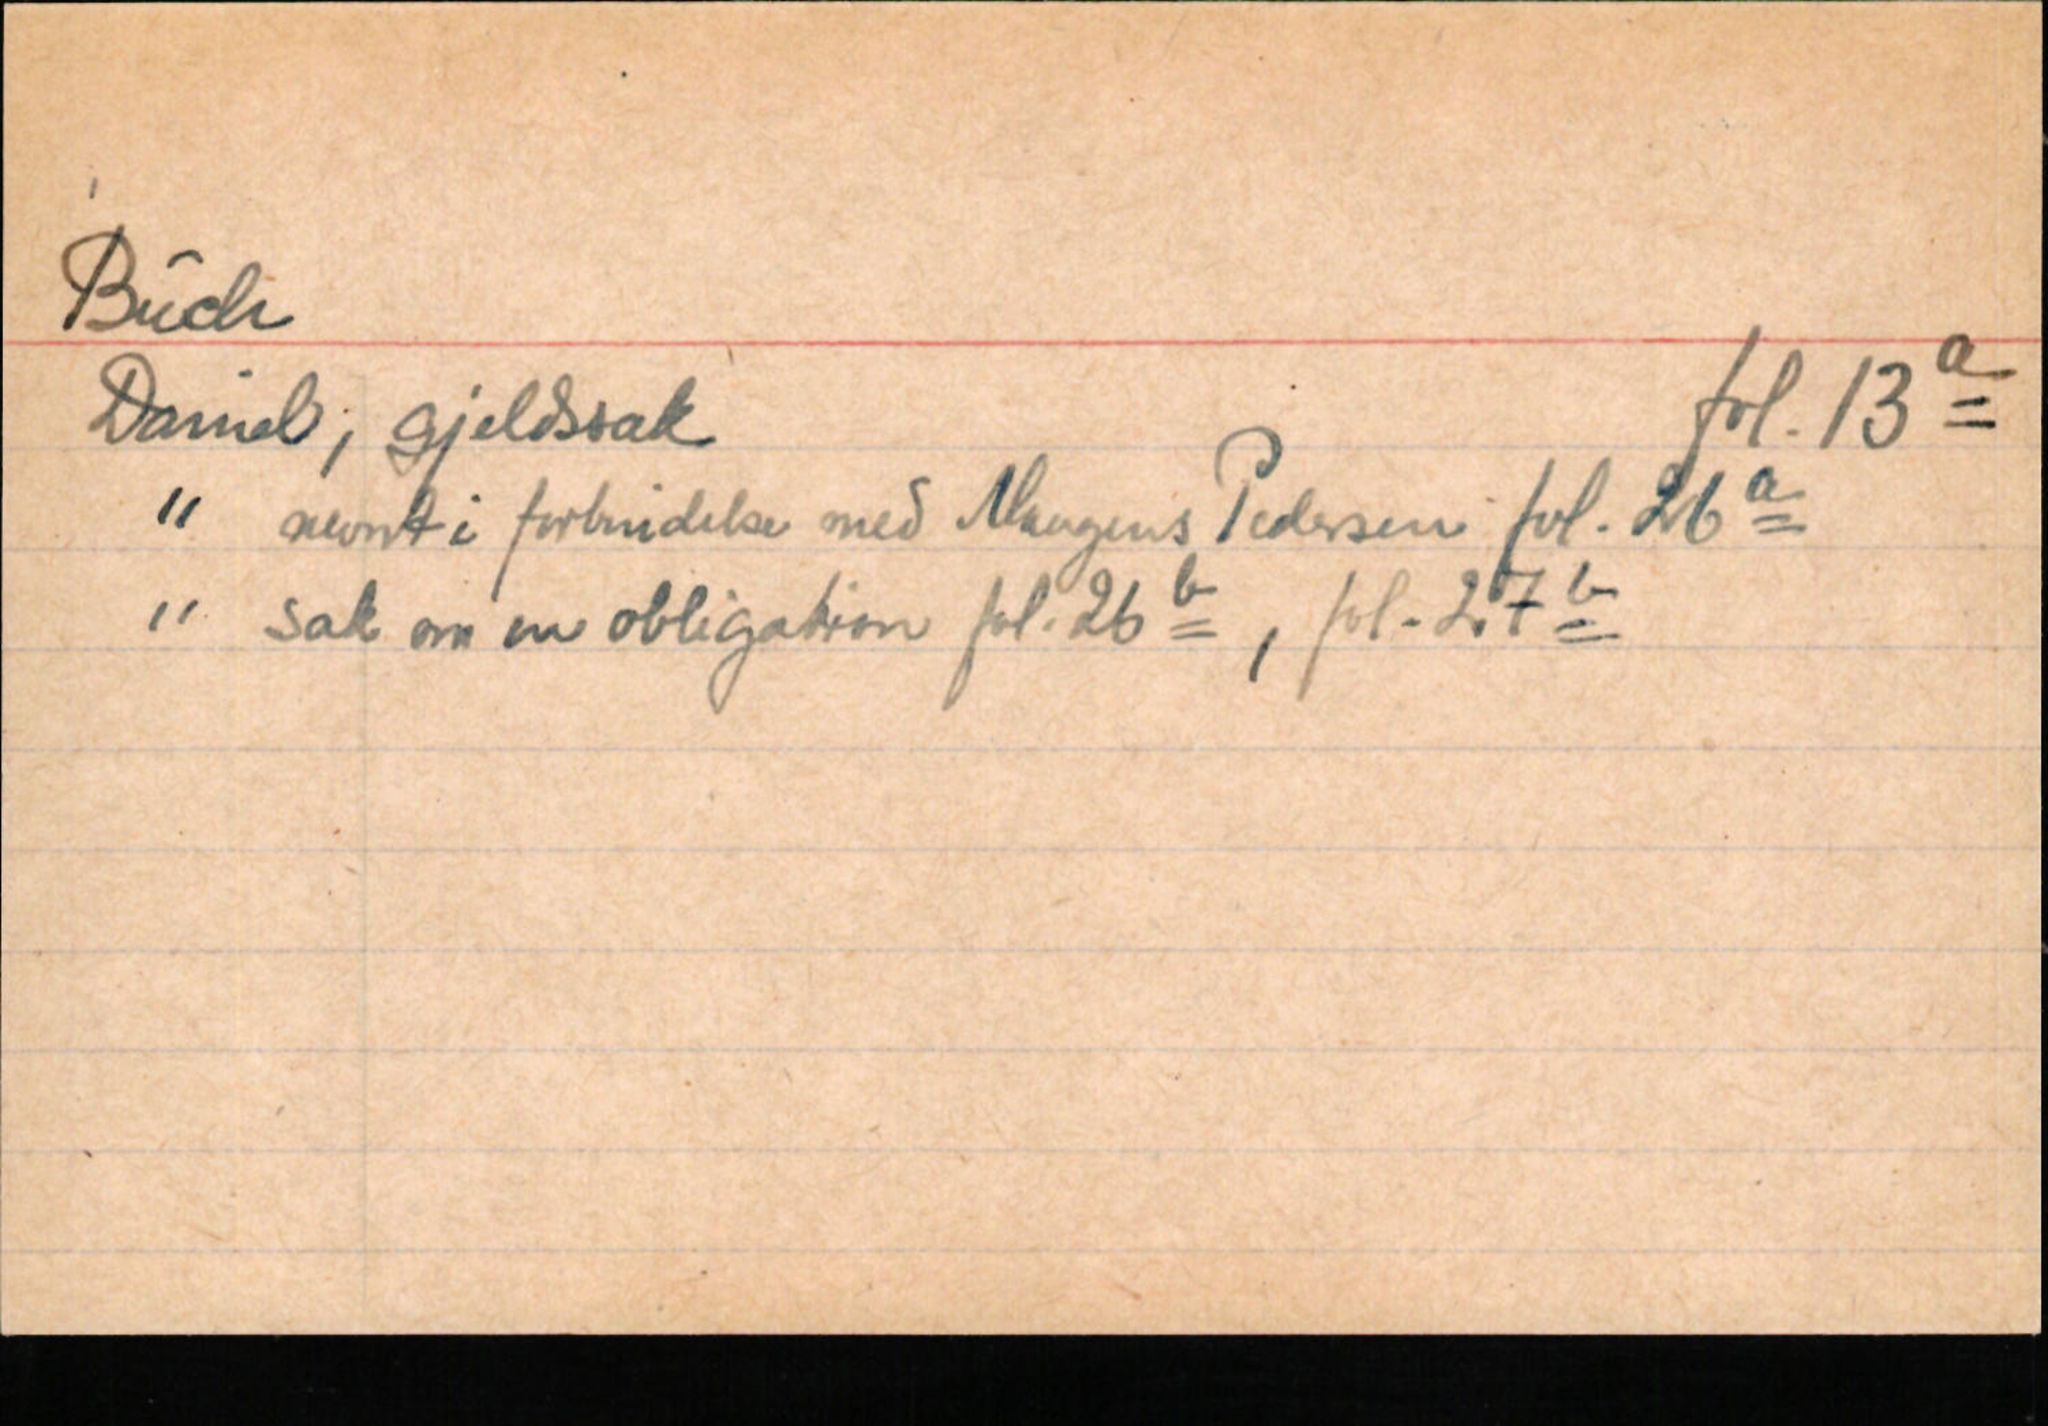 Bŭch
Daniel, gjeldssak fol. 13 a
" nevnt i forbindelse med Maugens Pedersen fol. 26 a
" sak om en obligation fol. 26 b, fol. 27 b